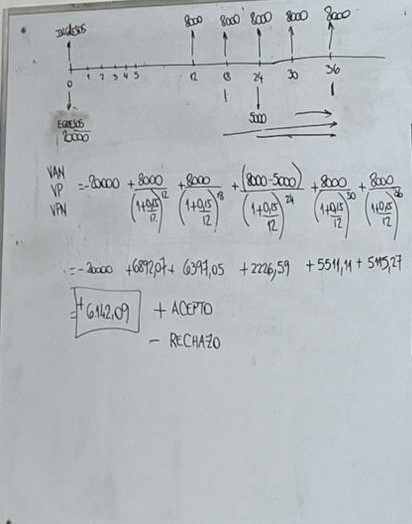 8000 8000 8000 8000 8000
INGRESOS
0 1 2 3 4 5 12 18 24 30 36
EGRESOS
20000
5000
VAN
VP
VPN
= -20000 + 8000/(1+0,15/12)^12 + 8000/(1+0,15/12)^18 + (8000-5000)/(1+0,15/12)^24 + 8000/(1+0,15/12)^30 + 8000/(1+0,15/12)^36
= -20000 +6892,07 + 6397,05 +2226,59 +5511,11 + 5115,27
= +6142,09 + ACEPTO
- RECHAZO